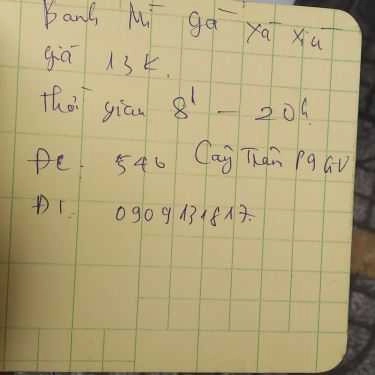 Bánh Mì gà xá xíu
giá 13K.
Thời gian 8h - 20h
ĐC. 546 Cây Trâm P9 GV
ĐT. 0909131817.